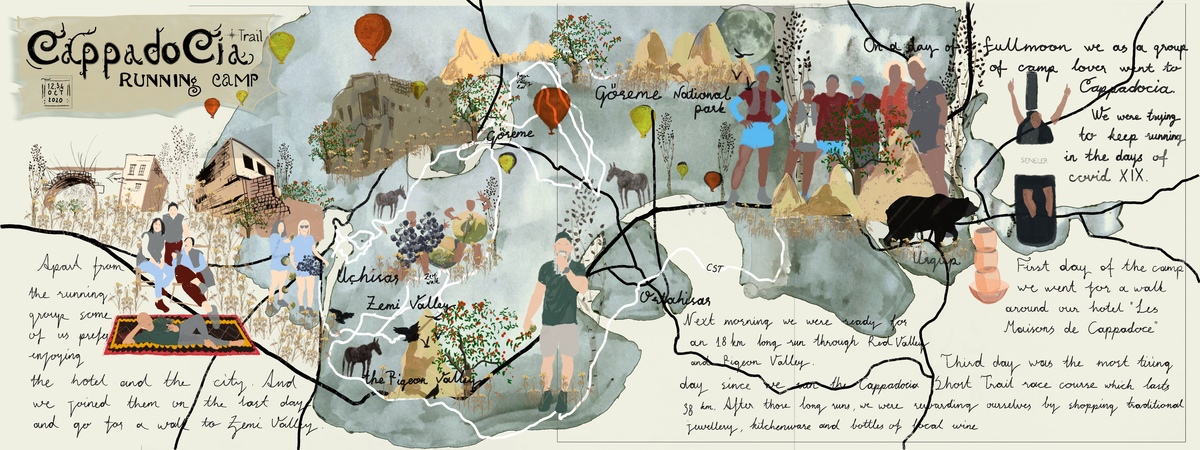 CappadoCia Trail
RUNNING CAMP
OCT
2020
On a day of fullmoon we as a group
of camp lover went to
Cappadocia.
We were trying
to keep running
in the days of
covid XIX.
SENELER
Göreme National
park
Göreme
Uchisar
Zemi Valley
the Pigeon Valley
CST
Ortahisar
Urgup
Apart from
the running
group some
of us prefer
enjoying
the hotel and the city. And
we joined them on the last day
and go for a walk to Zemi Valley.
First day of the camp
we went for a walk
around our hotel "Les
Maisons de Cappadoce"
Next morning we were ready for
an 18 km long run through Red Valley
and Pigeon Valley.
Third day was the most tiring
day since we ran the Cappadocia Short Trail race course which lasts
38 km. After those long runs, we were rewarding ourselves by shopping traditional
jewellery, kitchenware and bottles of local wine